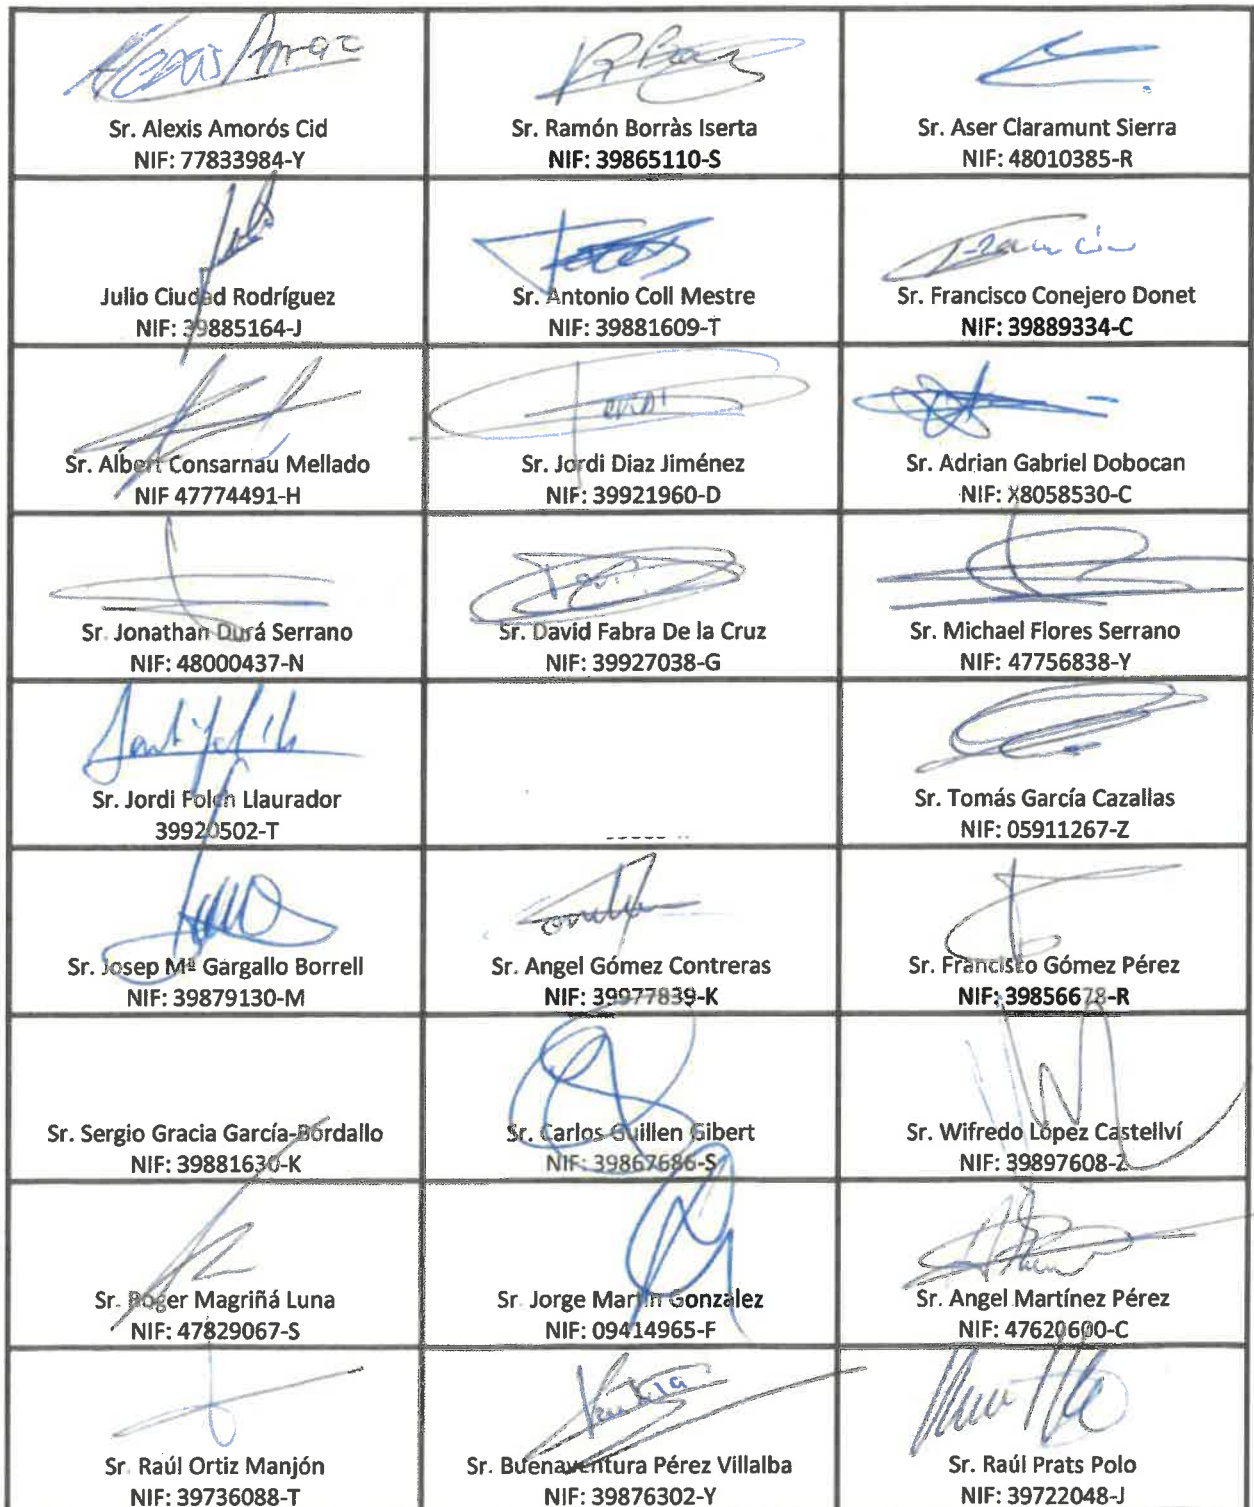 Sr. Alexis Amorós Cid
NIF: 77833984-Y
Sr. Ramón Borràs Iserta
NIF: 39865110-S
Sr. Aser Claramunt Sierra
NIF: 48010385-R
Julio Ciudad Rodríguez
NIF: 39885164-J
Sr. Antonio Coll Mestre
NIF: 39881609-T
Sr. Francisco Conejero Donet
NIF: 39889334-C
Sr. Albert Consarnau Mellado
NIF 47774491-H
Sr. Jordi Diaz Jiménez
NIF: 39921960-D
Sr. Adrian Gabriel Dobocan
NIF: X8058530-C
Sr. Jonathan Durá Serrano
NIF: 48000437-N
Sr. David Fabra De la Cruz
NIF: 39927038-G
Sr. Michael Flores Serrano
NIF: 47756838-Y
Sr. Jordi Folch Llaurador
39920502-T
Sr. Tomás García Cazallas
NIF: 05911267-Z
Sr. Josep Mª Gargallo Borrell
NIF: 39879130-M
Sr. Angel Gómez Contreras
NIF: 39977839-K
Sr. Francisco Gómez Pérez
NIF: 39856678-R
Sr. Sergio Gracia García-Bordallo
NIF: 39881630-K
Sr. Carlos Guillen Gibert
NIF: 39867686-S
Sr. Wifredo López Castellví
NIF: 39897608-Z
Sr. Roger Magriñá Luna
NIF: 47829067-S
Sr. Jorge Martin Gonzalez
NIF: 09414965-F
Sr. Angel Martínez Pérez
NIF: 47620600-C
Sr. Raúl Ortiz Manjón
NIF: 39736088-T
Sr. Buenaventura Pérez Villalba
NIF: 39876302-Y
Sr. Raúl Prats Polo
NIF: 39722048-J